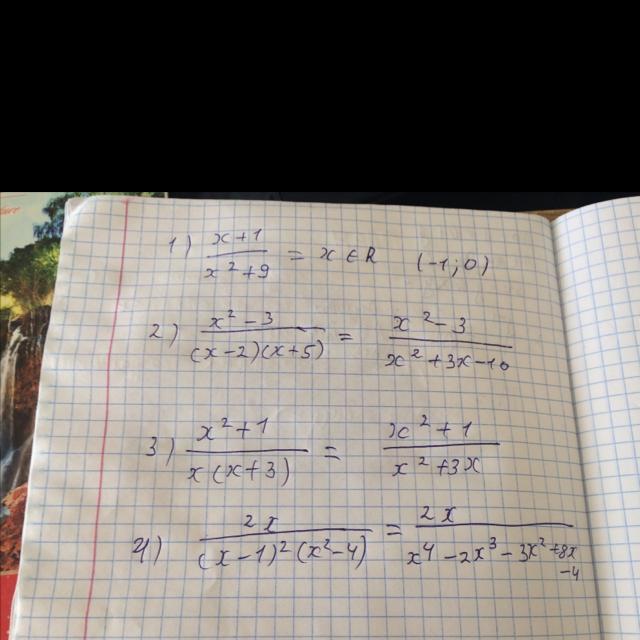 1) (x+1)/(x²+9) = x ∈ R (-1; 0)
2) (x²-3)/((x-2)(x+5)) = (x²-3)/(x²+3x-10)
3) (x²+1)/(x(x+3)) = (x²+1)/(x²+3x)
4) 2x/((x-1)²(x²-4)) = 2x/(x⁴-2x³-3x²+8x-4)